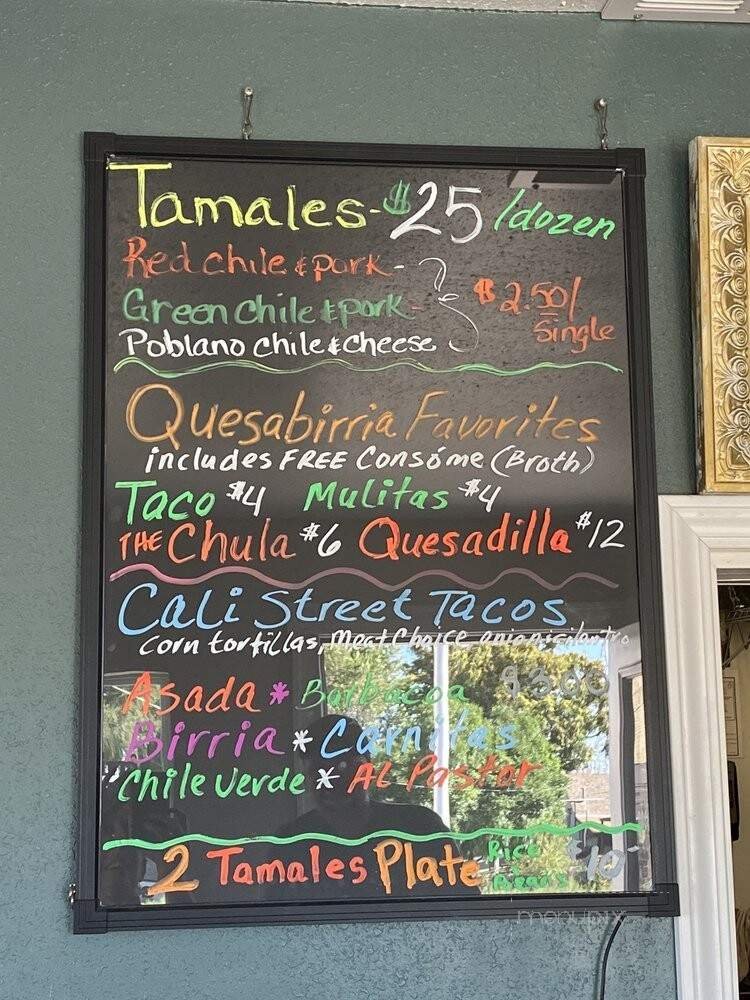 Tamales - $25 /dozen
Red chile & pork -
Green chile & pork -
$2.50/
Single
Poblano chile & cheese
Quesabirria Favorites
includes FREE Consóme (Broth)
Taco $4 Mulitas $4
THE Chula $6 Quesadilla $12
Cali Street Tacos
corn tortillas, Meat Choice, onion, cilantro
Asada * Barbacoa $3.00
Birria * Carnitas
Chile Verde * Al Pastor
2 Tamales Plate Rice $10
Beans
menupix